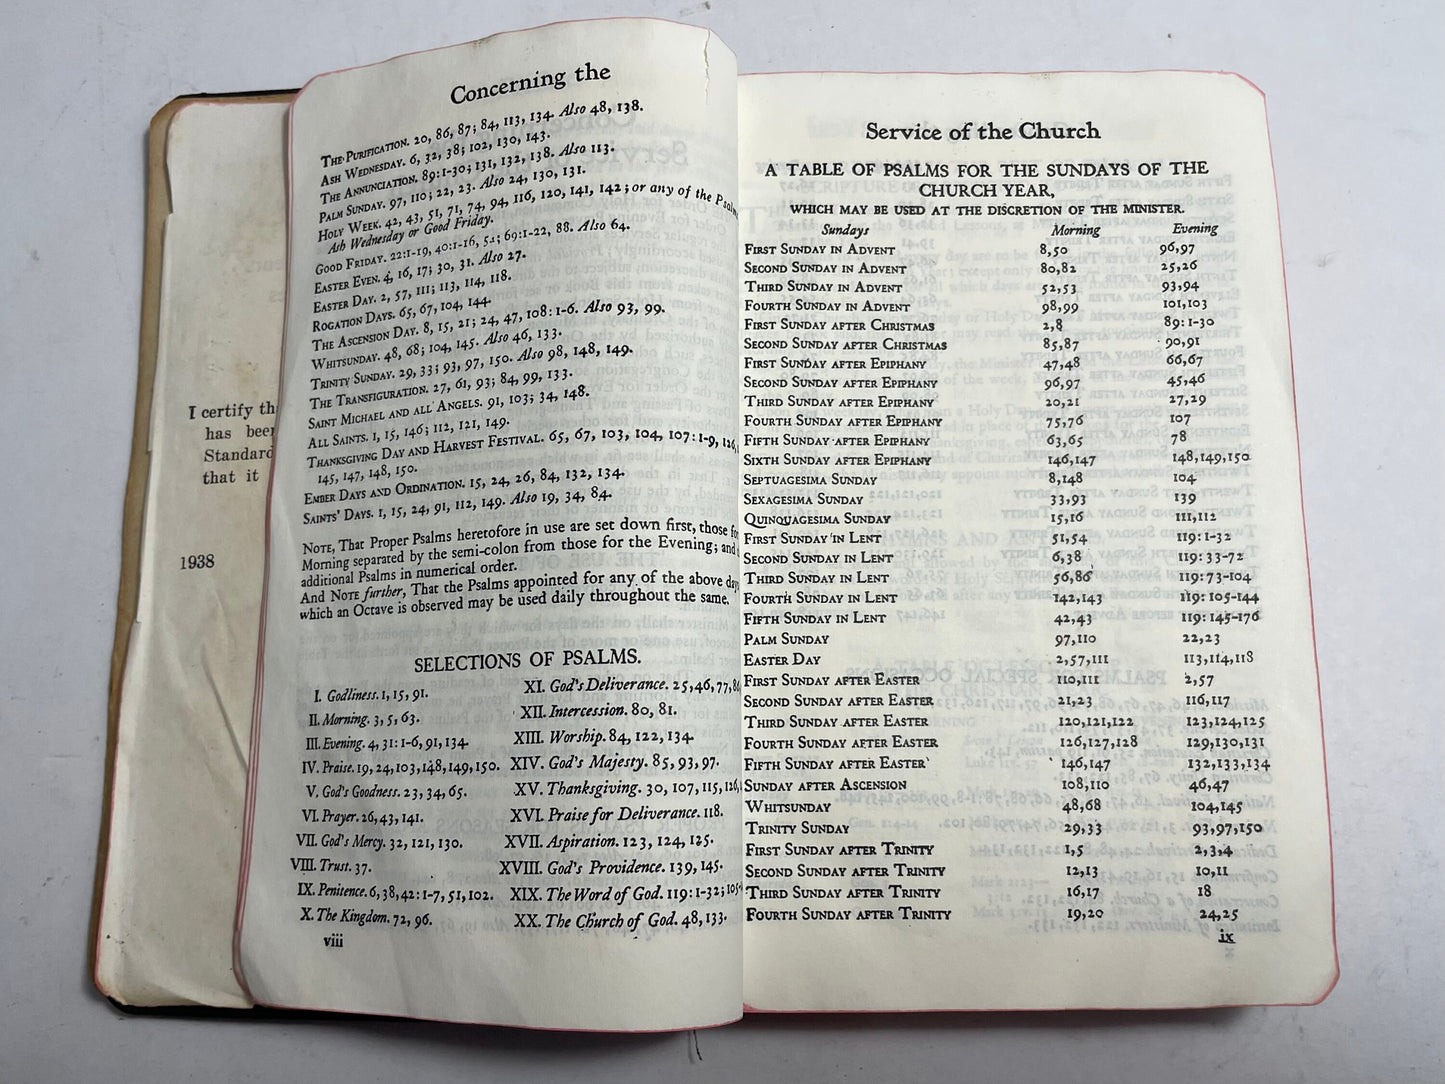 I certify th
has been
Standard
that it
1938
Concerning the
The Purification. 20, 86, 87; 84, 113, 134. Also 48, 138.
Ash Wednesday. 6, 32, 38; 102, 130, 143.
The Annunciation. 89:1-30; 131, 132, 138. Also 113.
Palm Sunday. 97, 110; 22, 23. Also 24, 130, 131.
Holy Week. 42, 43, 51, 71, 74, 94, 116, 120, 141, 142; or any of the Psalms
Ash Wednesday or Good Friday.
Good Friday. 22:1-19, 40:1-16, 54; 69:1-22, 88. Also 64.
Easter Even. 4, 16, 17; 30, 31. Also 27.
Easter Day. 2, 57, 111; 113, 114, 118.
Rogation Days. 65, 67, 104, 144.
The Ascension Day. 8, 15, 21; 24, 47, 108:1-6. Also 93, 99.
Whitsunday. 48, 68; 104, 145. Also 46, 133.
Trinity Sunday. 29, 33; 93, 97, 150. Also 98, 148, 149.
The Transfiguration. 27, 61, 93; 84, 99, 133.
Saint Michael and all Angels. 91, 103; 34, 148.
All Saints. 1, 15, 146; 112, 121, 149.
Thanksgiving Day and Harvest Festival. 65, 67, 103, 104, 107:1-9, 126,
145, 147, 148, 150.
Ember Days and Ordination. 15, 24, 26, 84, 132, 134.
Saints' Days. 1, 15, 24, 91, 112, 149. Also 19, 34, 84.
Note, That Proper Psalms heretofore in use are set down first, those for
Morning separated by the semi-colon from those for the Evening; and
additional Psalms in numerical order.
And Note further, That the Psalms appointed for any of the above days
which an Octave is observed may be used daily throughout the same.
SELECTIONS OF PSALMS.
I. Godliness. 1, 15, 91.
II. Morning. 3, 5, 63.
III. Evening. 4, 31:1-6, 91, 134.
IV. Praise. 19, 24, 103, 148, 149, 150.
V. God's Goodness. 23, 34, 65.
VI. Prayer. 26, 43, 141.
VII. God's Mercy. 32, 121, 130.
VIII. Trust. 37.
IX. Penitence. 6, 38, 42:1-7, 51, 102.
X. The Kingdom. 72, 96.
XI. God's Deliverance. 25, 46, 77, 86
XII. Intercession. 80, 81.
XIII. Worship. 84, 122, 134.
XIV. God's Majesty. 85, 93, 97.
XV. Thanksgiving. 30, 107, 115, 126,
XVI. Praise for Deliverance. 118.
XVII. Aspiration. 123, 124, 125.
XVIII. God's Providence. 139, 145.
XIX. The Word of God. 119:1-32; 105-
XX. The Church of God. 48, 133.
viii
Service of the Church
A TABLE OF PSALMS FOR THE SUNDAYS OF THE
CHURCH YEAR,
WHICH MAY BE USED AT THE DISCRETION OF THE MINISTER.
Sundays Morning Evening
First Sunday in Advent 8,50 96,97
Second Sunday in Advent 80,82 25,26
Third Sunday in Advent 52,53 93,94
Fourth Sunday in Advent 98,99 101,103
First Sunday after Christmas 2,8 89:1-30
Second Sunday after Christmas 85,87 90,91
First Sunday after Epiphany 47,48 66,67
Second Sunday after Epiphany 96,97 45,46
Third Sunday after Epiphany 20,21 27,29
Fourth Sunday after Epiphany 75,76 107
Fifth Sunday after Epiphany 63,65 78
Sixth Sunday after Epiphany 146,147 148,149,150
Septuagesima Sunday 8,148 104
Sexagesima Sunday 33,93 139
Quinquagesima Sunday 15,16 111,112
First Sunday in Lent 51,54 119:1-32
Second Sunday in Lent 6,38 119:33-72
Third Sunday in Lent 56,86 119:73-104
Fourth Sunday in Lent 142,143 119:105-144
Fifth Sunday in Lent 42,43 119:145-176
Palm Sunday 97,110 22,23
Easter Day 2,57,111 113,114,118
First Sunday after Easter 110,111 2,57
Second Sunday after Easter 21,23 116,117
Third Sunday after Easter 120,121,122 123,124,125
Fourth Sunday after Easter 126,127,128 129,130,131
Fifth Sunday after Easter 146,147 132,133,134
Sunday after Ascension 108,110 46,47
Whitsunday 48,68 104,145
Trinity Sunday 29,33 93,97,150
First Sunday after Trinity 1,5 2,3,4
Second Sunday after Trinity 12,13 10,11
Third Sunday after Trinity 16,17 18
Fourth Sunday after Trinity 19,20 24,25
ix